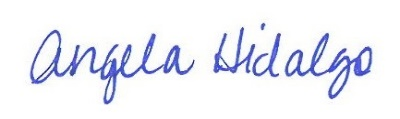 Angela Hidalgo